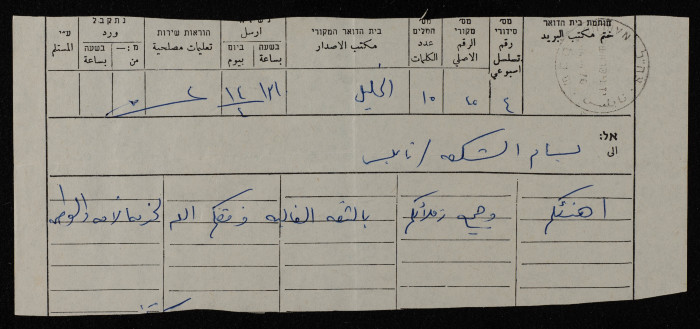 חותמת בית הדואר
ختم مكتب البريد
מס׳
סידורי
رقم
تسلسل
اسبوعي
מס׳
מקורי
الرقم
الاصلي
מס׳
המלים
عدد
الكلمات
בית הדואר המקורי
مكتب الاصدار
ארסל
בשעה
بساعة
ביום
بيوم
הוראות שירות
تعليمات مصلحية
נתקבל
ورد
בשעה
بساعة
מ:—
من
ע״י
المستلم
٤
١٥
الخليل
١٢
٤
אל:
الى
بسام الشكعه / نابلس
اهنئكم وجميع زملائكم بالثقه الغاليه وفقكم الله